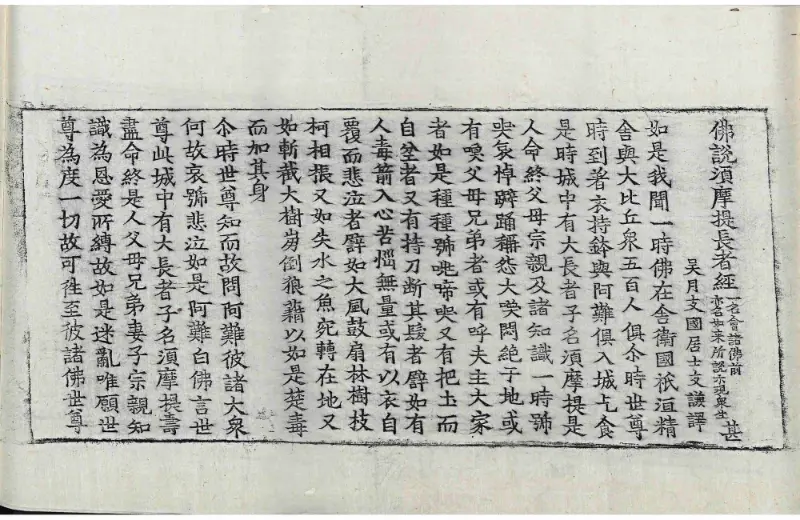 佛說須摩提長者經 一名會諸佛前 亦名如來所說示現衆生 甚
吳月支國居士支謙譯
如是我聞一時佛在舍衛國祇洹精
舍與大比丘衆五百人俱尒時世尊
時到著衣持鉢與阿難俱入城乞食
是時城中有大長者子名須摩提是
人命終父母宗親及諸知識一時號
哭哀悼躃踊稱怨大哭悶絕于地或
有喚父母兄弟者或有呼夫主大家
者如是種種號咷啼哭又有把土而
自坌者又有持刀斷其髮者譬如有
人毒箭入心苦惱無量或有以衣自
覆而悲泣者譬如大風鼓扇林樹枝
柯相振又如失水之魚宛轉在地又
如斬截大樹崩倒狼藉以如是楚毒
而加其身
尒時世尊知而故問阿難彼諸大衆
何故哀號悲泣如是阿難白佛言世
尊此城中有大長者子名須摩提壽
盡命終是人父母兄弟妻子宗親知
識為恩愛所縛故如是迷亂唯願世
尊為度一切故可往至彼諸佛世尊